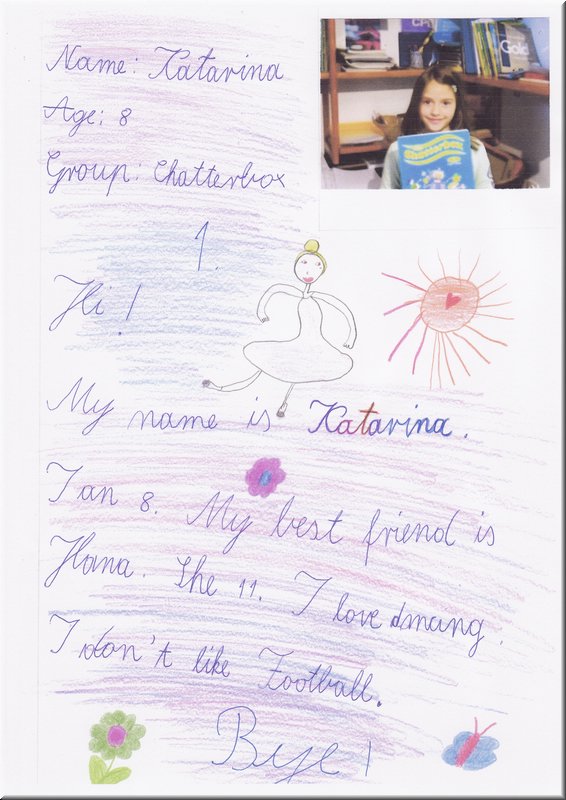 Name: Katarina
Age: 8
Group: Chatterbox
Gold
Chatterbox
1.
Hi!
My name is Katarina.
I an 8. My best friend is
Hana. She 11. I love dancing.
I don't like Football.
Bye!